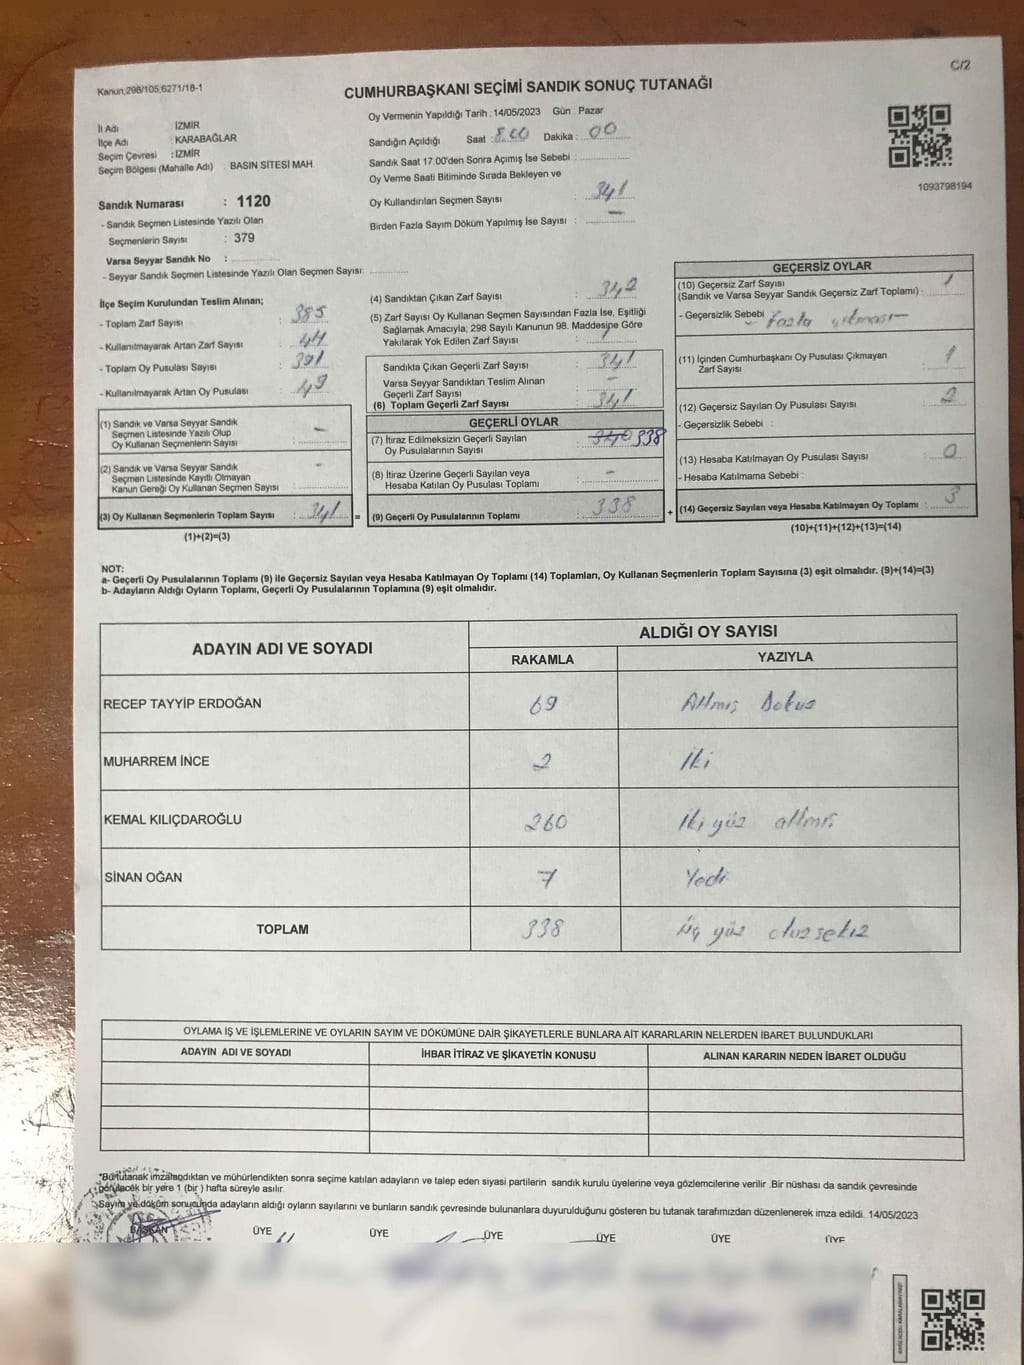 C/2
Kanun;298/105;6271/18-1
CUMHURBAŞKANI SEÇİMİ SANDIK SONUÇ TUTANAĞI
İl Adı : İZMİR
İlçe Adı : KARABAĞLAR
Seçim Çevresi : İZMİR
Seçim Bölgesi (Mahalle Adı) : BASIN SİTESİ MAH
Sandık Numarası : 1120
- Sandık Seçmen Listesinde Yazılı Olan
Seçmenlerin Sayısı : 379
Varsa Seyyar Sandık No :
- Seyyar Sandık Seçmen Listesinde Yazılı Olan Seçmen Sayısı:
Oy Vermenin Yapıldığı Tarih : 14/05/2023 Gün : Pazar
Sandığın Açıldığı Saat : 8.00 Dakika : 00
Sandık Saat 17.00'den Sonra Açımış İse Sebebi :
Oy Verme Saati Bitiminde Sırada Bekleyen ve
Oy Kullandırılan Seçmen Sayısı : 341
Birden Fazla Sayım Döküm Yapılmış İse Sayısı : —
1093798194
İlçe Seçim Kurulundan Teslim Alınan;
- Toplam Zarf Sayısı : 385
- Kullanılmayarak Artan Zarf Sayısı : 44
- Toplam Oy Pusulası Sayısı : 391
- Kullanılmayarak Artan Oy Pusulası : 49
(1) Sandık ve Varsa Seyyar Sandık
Seçmen Listesinde Yazılı Olup
Oy Kullanan Seçmenlerin Sayısı : —
(2) Sandık ve Varsa Seyyar Sandık
Seçmen Listesinde Kayıtlı Olmayan
Kanun Gereği Oy Kullanan Seçmen Sayısı : -
(3) Oy Kullanan Seçmenlerin Toplam Sayısı : 341 =
(1)+(2)=(3)
(4) Sandıktan Çıkan Zarf Sayısı : 342
(5) Zarf Sayısı Oy Kullanan Seçmen Sayısından Fazla İse, Eşitliği
Sağlamak Amacıyla; 298 Sayılı Kanunun 98. Maddesine Göre
Yakılarak Yok Edilen Zarf Sayısı : 1
Sandıkta Çıkan Geçerli Zarf Sayısı : 341
Varsa Seyyar Sandıktan Teslim Alınan
Geçerli Zarf Sayısı : —
(6) Toplam Geçerli Zarf Sayısı : 341
GEÇERLİ OYLAR
(7) İtiraz Edilmeksizin Geçerli Sayılan
Oy Pusulalarının Sayısı : 340 338
(8) İtiraz Üzerine Geçerli Sayılan veya
Hesaba Katılan Oy Pusulası Toplamı : —
(9) Geçerli Oy Pusulalarının Toplamı : 338 +
GEÇERSİZ OYLAR
(10) Geçersiz Zarf Sayısı
(Sandık ve Varsa Seyyar Sandık Geçersiz Zarf Toplamı) : 1
- Geçersizlik Sebebi : Fazla çıkması
(11) İçinden Cumhurbaşkanı Oy Pusulası Çıkmayan
Zarf Sayısı : 1
(12) Geçersiz Sayılan Oy Pusulası Sayısı : 2
- Geçersizlik Sebebi :
(13) Hesaba Katılmayan Oy Pusulası Sayısı : 0
- Hesaba Katılmama Sebebi :
(14) Geçersiz Sayılan veya Hesaba Katılmayan Oy Toplamı : 3
(10)+(11)+(12)+(13)=(14)
NOT:
a- Geçerli Oy Pusulalarının Toplamı (9) ile Geçersiz Sayılan veya Hesaba Katılmayan Oy Toplamı (14) Toplamları, Oy Kullanan Seçmenlerin Toplam Sayısına (3) eşit olmalıdır. (9)+(14)=(3)
b- Adayların Aldığı Oyların Toplamı, Geçerli Oy Pusulalarının Toplamına (9) eşit olmalıdır.
ADAYIN ADI VE SOYADI ALDIĞI OY SAYISI
RAKAMLA YAZIYLA
RECEP TAYYİP ERDOĞAN 69 Altmış Dokuz
MUHARREM İNCE 2 İki
KEMAL KILIÇDAROĞLU 260 İki yüz altmış
SİNAN OĞAN 7 Yedi
TOPLAM 338 Üç yüz otuz sekiz
OYLAMA İŞ VE İŞLEMLERİNE VE OYLARIN SAYIM VE DÖKÜMÜNE DAİR ŞİKAYETLERLE BUNLARA AİT KARARLARIN NELERDEN İBARET BULUNDUKLARI
ADAYIN ADI VE SOYADI İHBAR İTİRAZ VE ŞİKAYETİN KONUSU ALINAN KARARIN NEDEN İBARET OLDUĞU
*Bu tutanak imzalandıktan ve mühürlendikten sonra seçime katılan adayların ve talep eden siyasi partilerin sandık kurulu üyelerine veya gözlemcilerine verilir .Bir nüshası da sandık çevresinde
görülecek bir yere 1 (bir ) hafta süreyle asılır.
Sayım ve döküm sonucunda adayların aldığı oyların sayılarını ve bunların sandık çevresinde bulunanlara duyurulduğunu gösteren bu tutanak tarafımızdan düzenlenerek imza edildi. 14/05/2023
BAŞKAN ÜYE ÜYE ÜYE ÜYE ÜYE ÜYE